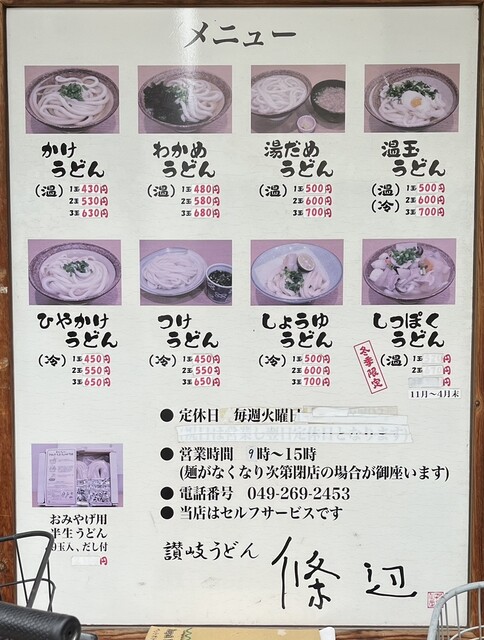 メニュー
かけうどん
(温) 1玉 430円
2玉 530円
3玉 630円
わかめうどん
(温) 1玉 480円
2玉 580円
3玉 680円
湯だめうどん
(温) 1玉 500円
2玉 600円
3玉 700円
温玉うどん
(温) 1玉 500円
(冷) 2玉 600円
3玉 700円
ひやかけうどん
(冷) 1玉 450円
2玉 550円
3玉 650円
つけうどん
(冷) 1玉 450円
2玉 550円
3玉 650円
しょうゆうどん
(冷) 1玉 500円
2玉 600円
3玉 700円
しっぽくうどん
冬季限定
(温) 1玉 円
2玉 円
円
11月〜4月末
おみやげ用
半生うどん
9玉入、だし付
円
● 定休日 毎週火曜日
● 営業時間 9時〜15時
(麺がなくなり次第閉店の場合が御座います)
● 電話番号 049-269-2453
● 当店はセルフサービスです
讃岐うどん 條辺